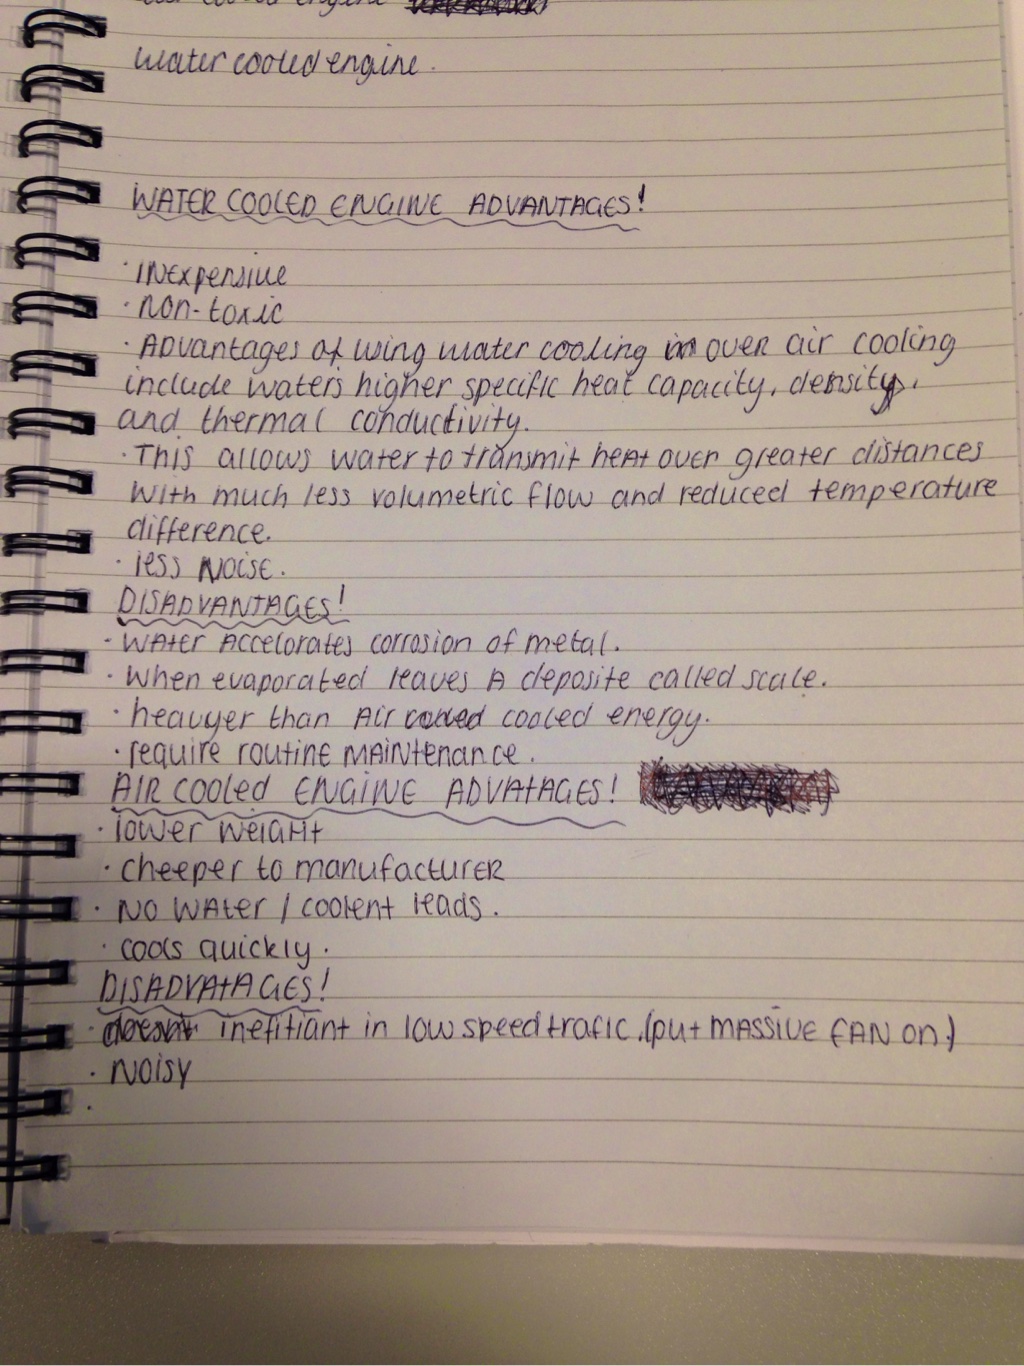 cooled engine
water cooled engine.
WATER COOLED ENGINE ADVANTAGES!
· INExpensive
· NON-toxic
· ADvantages of using water cooling over air cooling
include waters higher specific heat capacity, density,
and thermal conductivity.
· This allows water to transmit heat over greater distances
with much less volumetric flow and reduced temperature
difference.
· less NOISE.
DISADVANTAGES!
· WATER Accelorates corrosion of metal.
· When evaporated leaves A deposite called scale.
· heavyer than Air cooled energy.
· require routine MAINtenance.
AIR COOLED ENGINE ADVAtAGES!
· lower weight
· cheeper to manufacturER
· NO WAter / coolent leads.
· cools quickly.
DISADVAtAGES!
· inefitiant in low speed trafic. (put MASSIVE FAN on.)
· NOISY
·